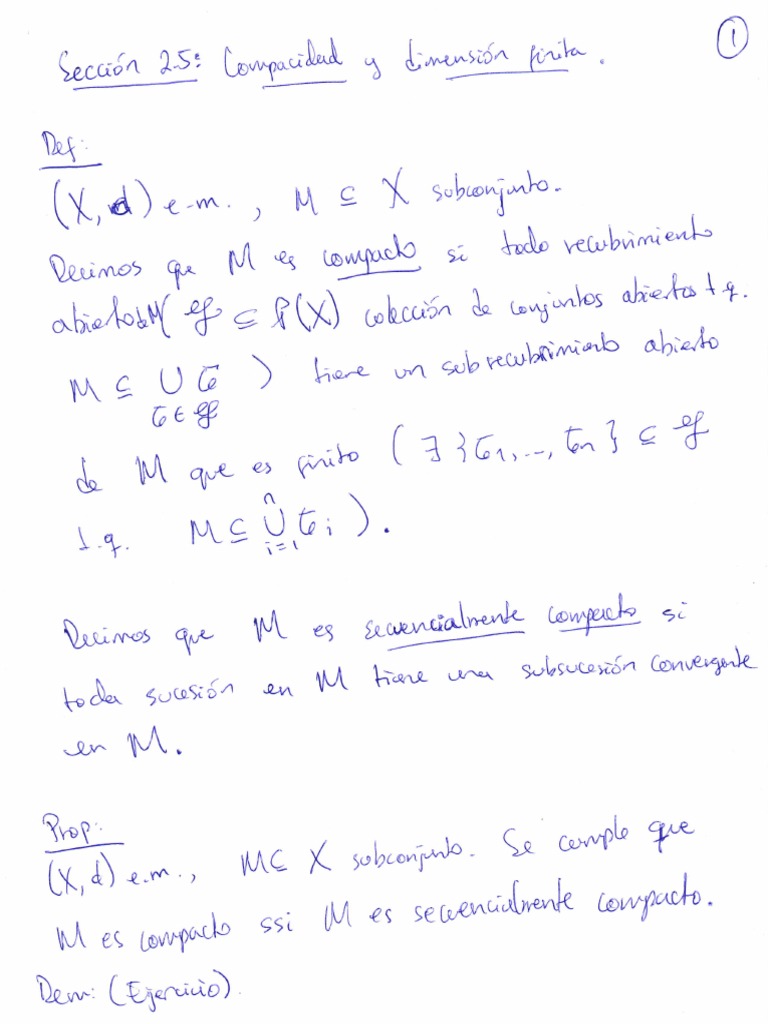 ①
Sección 2.5: Compacidad y dimensión finita.
Def:
(X, d) e.m., M ⊆ X subconjunto.
Decimos que M es compacto si todo recubrimiento
abierto de M ( 𝒞 ⊆ P(X) colección de conjuntos abiertos t.q.
M ⊆ ∪ G ) tiene un subrecubrimiento abierto
G ∈ 𝒞
de M que es finito ( ∃ {G₁, ..., Gₙ} ⊆ 𝒞
t.q. M ⊆ ∪ᵢ₌₁ⁿ Gᵢ ).
Decimos que M es secuencialmente compacto si
toda sucesión en M tiene una subsucesión convergente
en M.
Prop:
(X, d) e.m., M ⊆ X subconjunto. Se cumple que
M es compacto ssi M es secuencialmente compacto.
Dem: (Ejercicio).